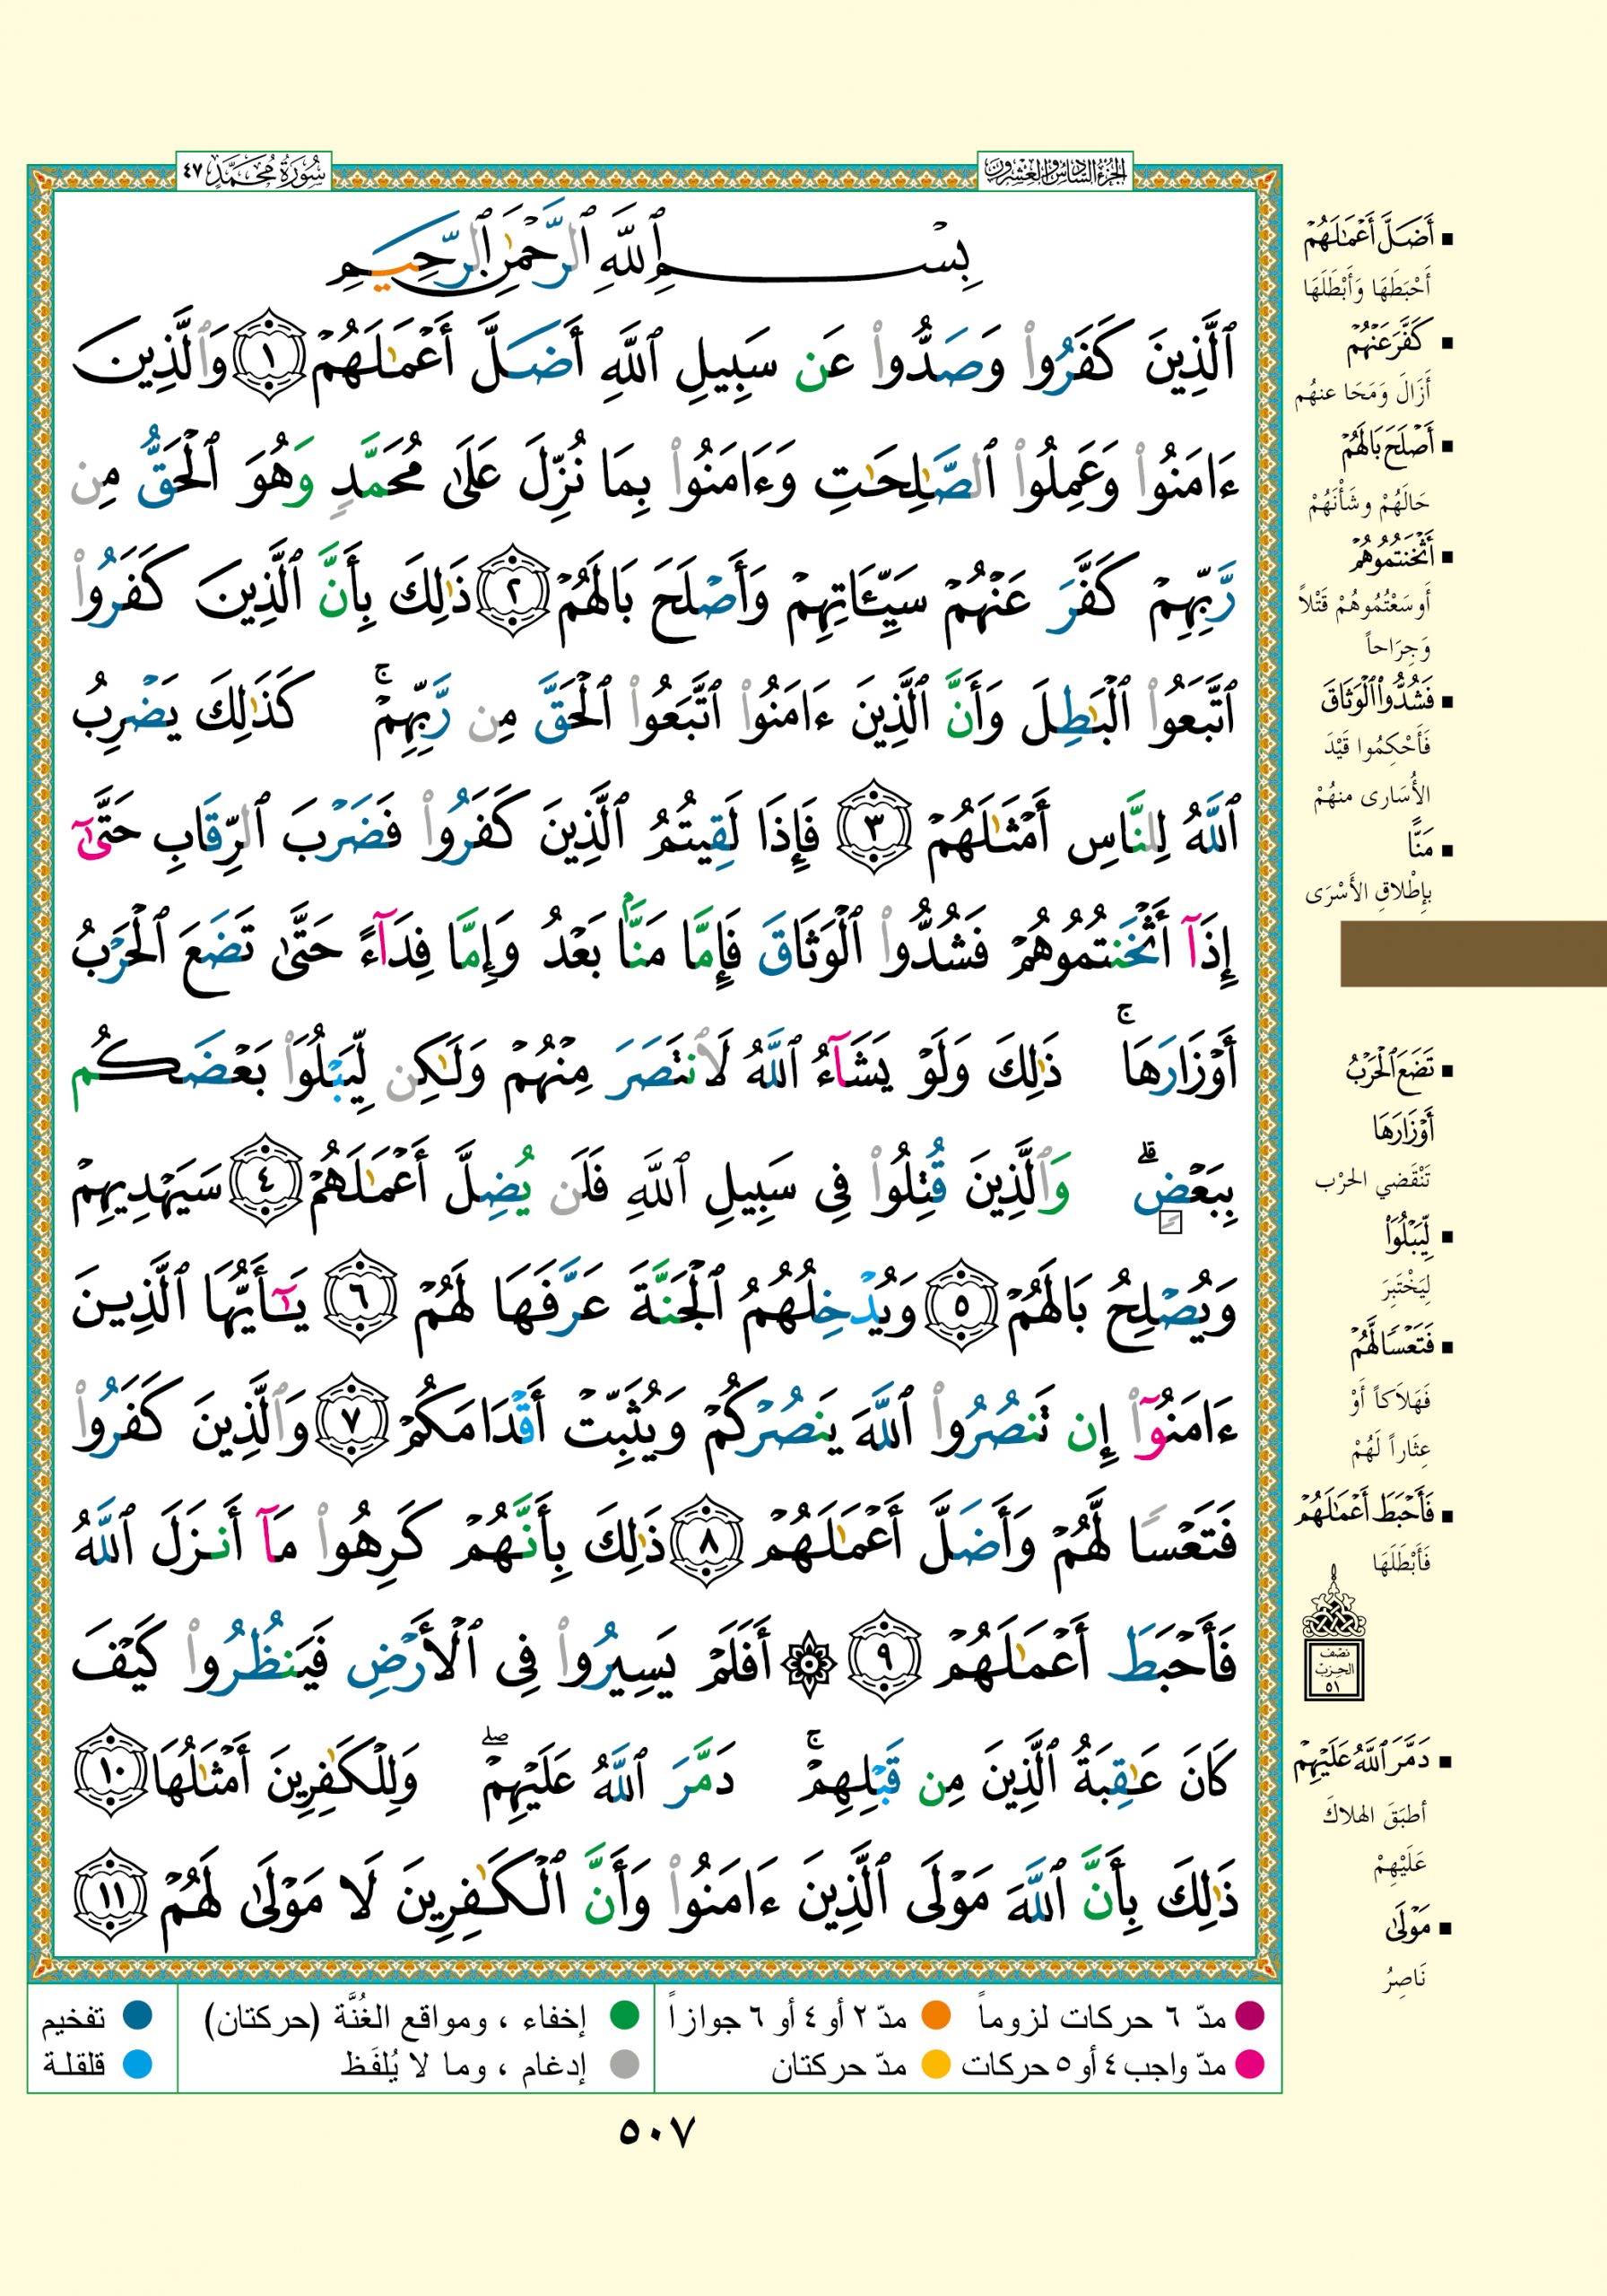 الجزء السادس والعشرون
سورة محمد ٤٧
بِسۡمِ ٱللَّهِ ٱلرَّحۡمَٰنِ ٱلرَّحِيمِ
ٱلَّذِينَ كَفَرُواْ وَصَدُّواْ عَن سَبِيلِ ٱللَّهِ أَضَلَّ أَعۡمَٰلَهُمۡ ١ وَٱلَّذِينَ
ءَامَنُواْ وَعَمِلُواْ ٱلصَّٰلِحَٰتِ وَءَامَنُواْ بِمَا نُزِّلَ عَلَىٰ مُحَمَّدٖ وَهُوَ ٱلۡحَقُّ مِن
رَّبِّهِمۡ كَفَّرَ عَنۡهُمۡ سَيِّـَٔاتِهِمۡ وَأَصۡلَحَ بَالَهُمۡ ٢ ذَٰلِكَ بِأَنَّ ٱلَّذِينَ كَفَرُواْ
ٱتَّبَعُواْ ٱلۡبَٰطِلَ وَأَنَّ ٱلَّذِينَ ءَامَنُواْ ٱتَّبَعُواْ ٱلۡحَقَّ مِن رَّبِّهِمۡۚ كَذَٰلِكَ يَضۡرِبُ
ٱللَّهُ لِلنَّاسِ أَمۡثَٰلَهُمۡ ٣ فَإِذَا لَقِيتُمُ ٱلَّذِينَ كَفَرُواْ فَضَرۡبَ ٱلرِّقَابِ حَتَّىٰٓ
إِذَآ أَثۡخَنتُمُوهُمۡ فَشُدُّواْ ٱلۡوَثَاقَ فَإِمَّا مَنَّۢا بَعۡدُ وَإِمَّا فِدَآءً حَتَّىٰ تَضَعَ ٱلۡحَرۡبُ
أَوۡزَارَهَاۚ ذَٰلِكَ وَلَوۡ يَشَآءُ ٱللَّهُ لَٱنتَصَرَ مِنۡهُمۡ وَلَٰكِن لِّيَبۡلُوَاْ بَعۡضَكُم
بِبَعۡضٖۗ وَٱلَّذِينَ قُتِلُواْ فِي سَبِيلِ ٱللَّهِ فَلَن يُضِلَّ أَعۡمَٰلَهُمۡ ٤ سَيَهۡدِيهِمۡ
وَيُصۡلِحُ بَالَهُمۡ ٥ وَيُدۡخِلُهُمُ ٱلۡجَنَّةَ عَرَّفَهَا لَهُمۡ ٦ يَٰٓأَيُّهَا ٱلَّذِينَ
ءَامَنُوٓاْ إِن تَنصُرُواْ ٱللَّهَ يَنصُرۡكُمۡ وَيُثَبِّتۡ أَقۡدَامَكُمۡ ٧ وَٱلَّذِينَ كَفَرُواْ
فَتَعۡسٗا لَّهُمۡ وَأَضَلَّ أَعۡمَٰلَهُمۡ ٨ ذَٰلِكَ بِأَنَّهُمۡ كَرِهُواْ مَآ أَنزَلَ ٱللَّهُ
فَأَحۡبَطَ أَعۡمَٰلَهُمۡ ٩ ۞ أَفَلَمۡ يَسِيرُواْ فِي ٱلۡأَرۡضِ فَيَنظُرُواْ كَيۡفَ
كَانَ عَٰقِبَةُ ٱلَّذِينَ مِن قَبۡلِهِمۡۚ دَمَّرَ ٱللَّهُ عَلَيۡهِمۡۖ وَلِلۡكَٰفِرِينَ أَمۡثَٰلُهَا ١٠
ذَٰلِكَ بِأَنَّ ٱللَّهَ مَوۡلَى ٱلَّذِينَ ءَامَنُواْ وَأَنَّ ٱلۡكَٰفِرِينَ لَا مَوۡلَىٰ لَهُمۡ ١١
أَضَلَّ أَعۡمَٰلَهُمۡ
أَحْبَطَهَا وَأَبْطَلَهَا
كَفَّرَ عَنۡهُمۡ
أَزَالَ وَمَحَا عنهُم
أَصۡلَحَ بَالَهُمۡ
حَالَهُمْ وشَأْنَهُمْ
أَثۡخَنتُمُوهُمۡ
أَوسَعْتُمُوهُمْ قَتْلاً
وَجِرَاحاً
فَشُدُّواْ ٱلۡوَثَاقَ
فَأَحْكِمُوا قَيْدَ
الأُسَارى منهُمْ
مَنًّا
بإِطْلاقِ الأَسْرَى
تَضَعَ ٱلۡحَرۡبُ
أَوۡزَارَهَا
تَنْقَضي الحرْب
لِّيَبۡلُوَاْ
لِيَخْتَبِرَ
فَتَعۡسٗا لَّهُمۡ
فَهَلاَكاً أَوْ
عِثَاراً لَهُمْ
فَأَحۡبَطَ أَعۡمَٰلَهُمۡ
فَأَبْطَلَهَا
نصف
الحزب
٥١
دَمَّرَ ٱللَّهُ عَلَيۡهِمۡ
أطبَقَ الهلاكَ
عَلَيْهِمْ
مَوۡلَىٰ
نَاصِرُ
مدّ ٦ حركات لزوماً مدّ ٢ أو ٤ أو ٦ جوازاً إخفاء ، ومواقع الغُنَّة (حركتان) تفخيم
مدّ واجب ٤ أو ٥ حركات مدّ حركتان إدغام ، وما لا يُلفَظ قلقلة
٥٠٧